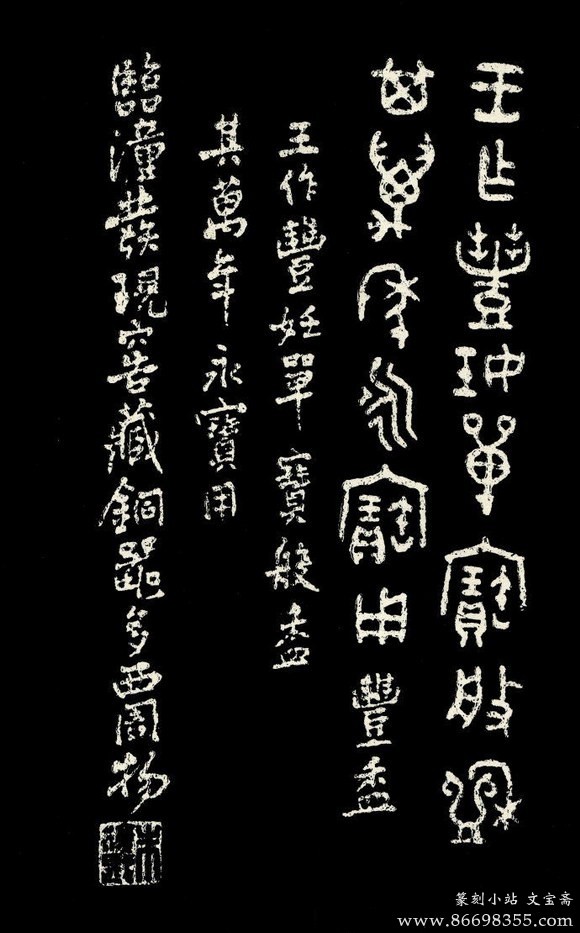 王乍豐妊單寶般盉
其萬年永寶用 豐盉
王作豐妊單寶般盉
其萬年永寶用
臨潼發現窖藏銅器多西周物
篆刻小站 文宝斋
www.86698355.com